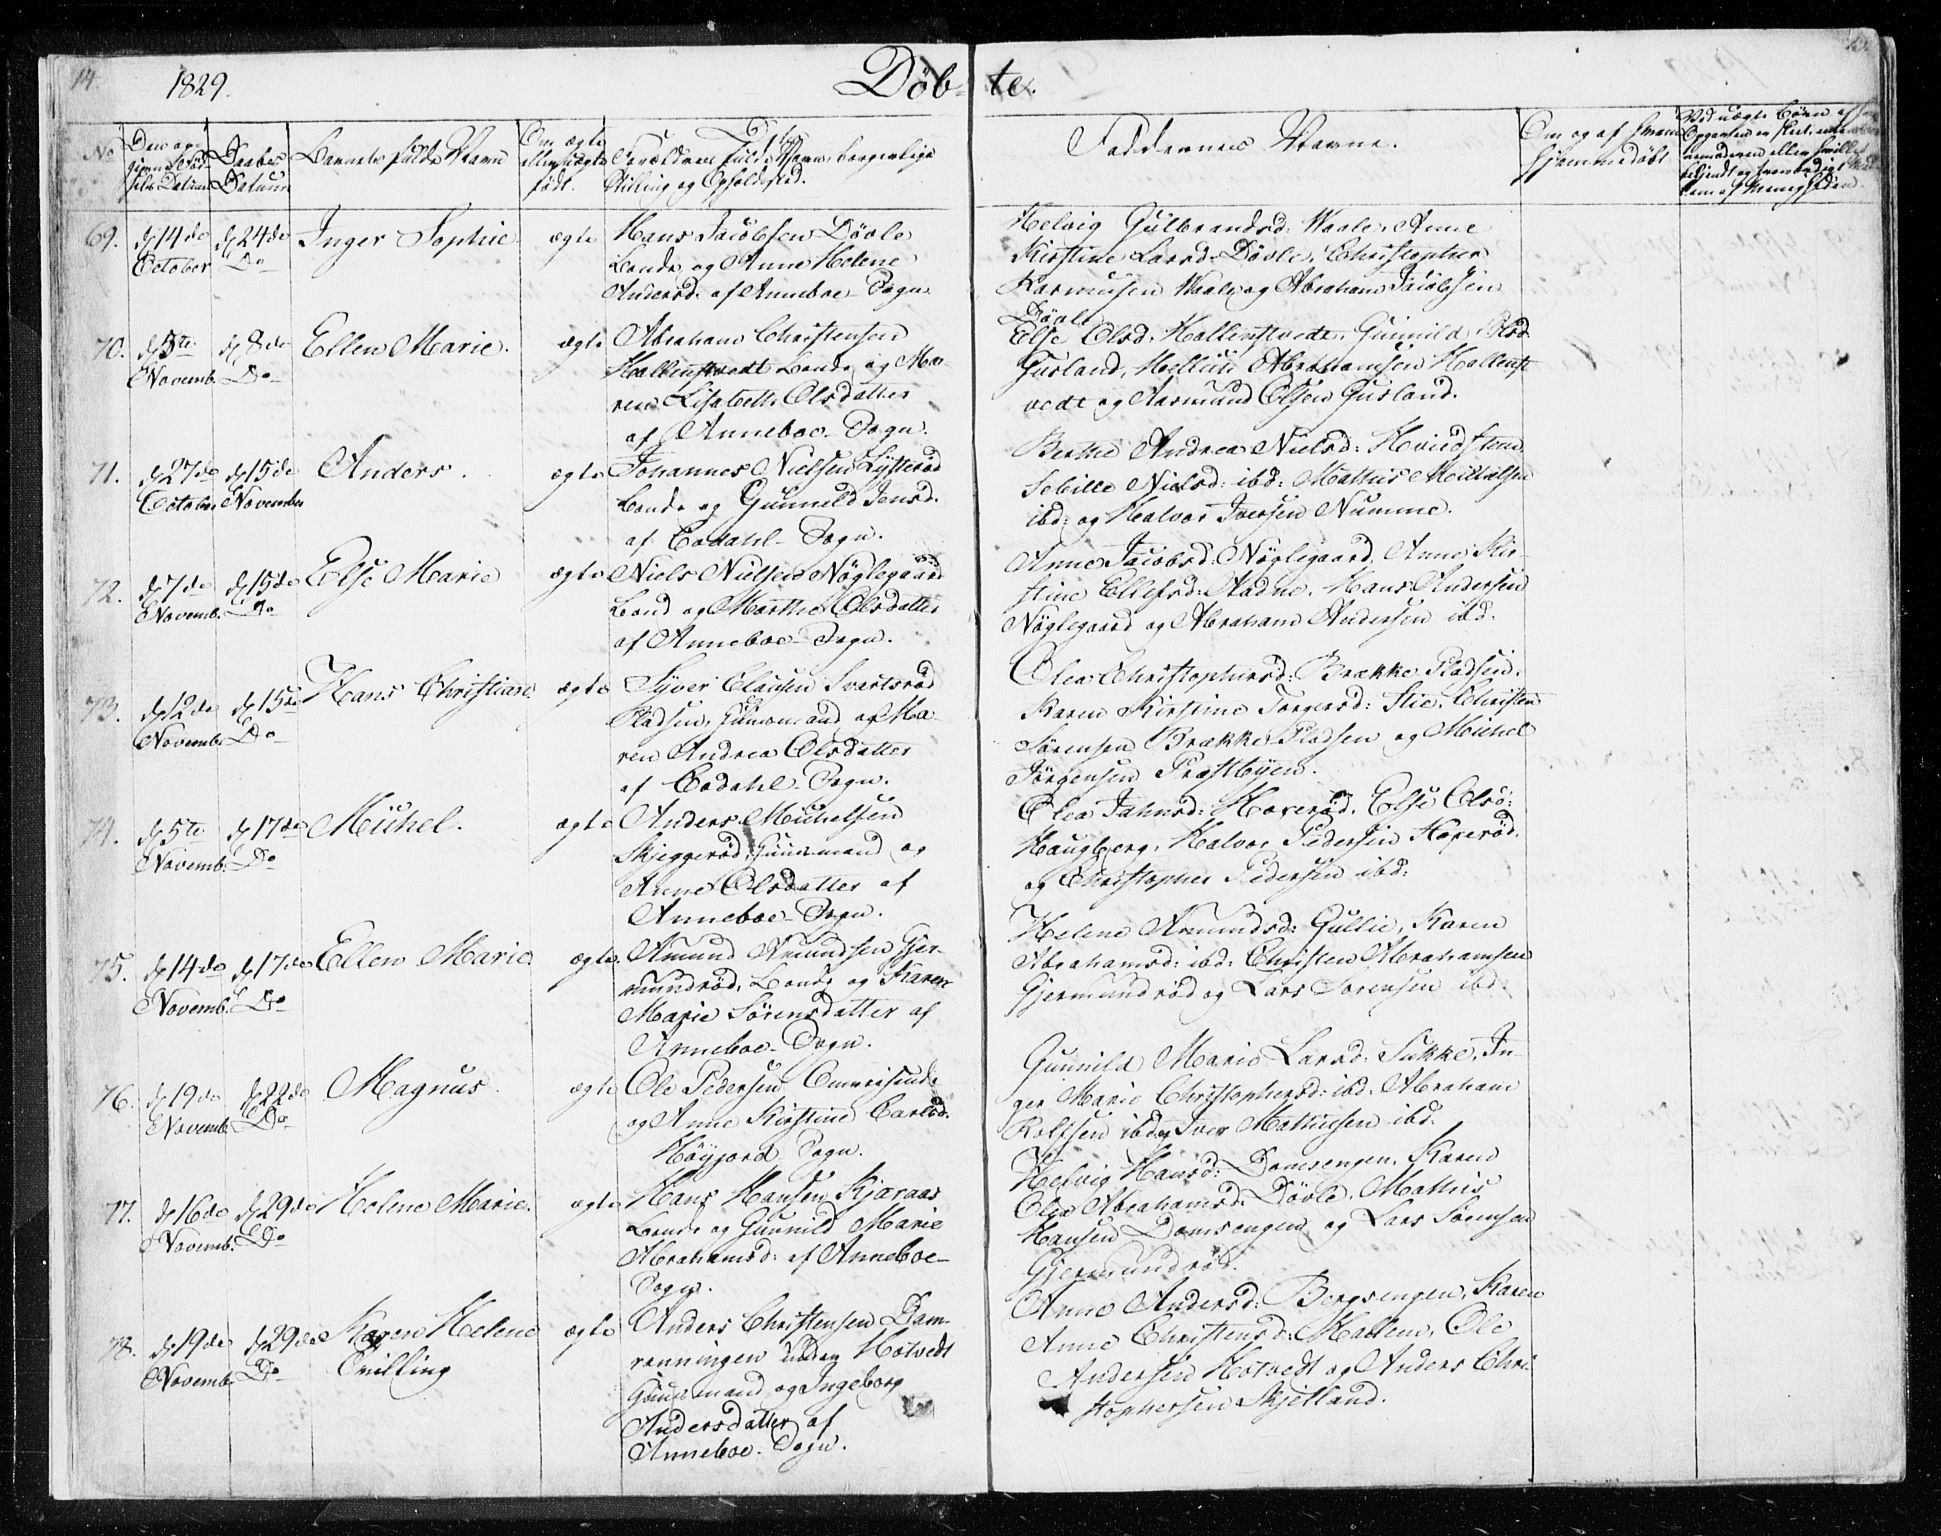 14.
1829.
Døb- te.
No
Daabs Datum
Barnets fulde Navn
Om ægte eller uægte født.
Forældrenes fulde Navn, borgerlige Stilling og Opholdssted.
Faddernes Navne.
Om og af hvem hjemmedøbt
69. d 14de October
d 24de Do
Inger Sophie
ægte
Hans Jacobsen Døvle
Bonde og Anne Helene
Andersd. af Anneboe Sogn
Helvig Gulbrandsd: Waale, Anne
Kirstine Larsd: Døvle, Christopher
Rasmusen Waale og Abraham Jacobsen
Døvle
70. d 5te Novemb.
d 8de Do
Ellen Marie.
ægte
Abraham Christensen
Hallenstvedt Bonde og Ma-
ren Lisabeth Olsdatter
af Anneboe Sogn.
Else Olsd. Hallenstvedt, Gunnild Olsd
Gusland, Abrahamsen Hallenst
vedt og Aasmund Olsen Gusland.
71. d 27de October
d 15de November
Anders.
ægte
Johannes Nielsen Lytterød
Bonde og Gunneld Jensd.
af Codahl Sogn.
Berthe Andrea Nielsd: Hvidsteen
Sebille Nielsd: ibd: Mathis
ibd: og Halvor Iversen Numme.
72. d 7de Novemb.
d 15de Do
Else Marie
ægte
Niels Nielsen Nøglegaard
Bond og Marthe Olsdatter
af Anneboe Sogn.
Anne Jacobsd. Nøglegaard, Anne Kir-
stine Ellefsd: Aadne, Hans Andersen
Nøglegaard og Abraham Andersen ibd.
73. d 12de Novemb.
d 15de Do
Hans Christian
ægte
Syver Clausen Svartsrød
Pladsen, Huusmand og Ma-
ren Andrea Olsdatter
af Codahl Sogn.
Olea Christophersd: Brække Pladsen,
Karen Kirstine Torgersd: Stie, Christen
Sørensen Brække Pladsen og Michel
Jørgensen Præstbyen.
74. d 5te Novemb.
d 17de Do
Michel.
ægte
Anders Michelsen
Skjeggerød, Huusmand og
Anne Olsdatter af
Anneboe Sogn.
Olea Jahnsd: Haverød, Else Olsd:
Haugberg, Halvor Pedersen Haverød.
og Christopher Pedersen ibd:
75. d 14de Novemb.
d 17de Do
Ellen Marie
ægte
Amund Amundsen Gjer-
mundrød, Bonde og Karen
Marie Sørensdatter af
Anneboe Sogn.
Helene Amundsd: Gullie, Karen
Abrahamsd: ibd: Christen Abrahamsen
Gjermundrød og Lars Sørensen ibd:
76. d 19de Novemb.
d 22de Do
Magnus.
ægte
Ole Pedersen Omreisende
og Anne Kirstine Carlsd.
Høyjord Sogn.
Gunnild Marie Larsd: Sukke, In-
ger Marie Christophersd: ibd: Abraham
Rolfsen ibd og Iver Mathisen ibd.
77. d 16de Novemb.
d 29de Do
Helene Marie.
ægte
Hans Hansen Kjæraas
Bonde og Gunnild Marie
Abrahamsd: af Anneboe
Sogn.
Helvig Hansd: Domsengen, Karen
Olea Abrahamsd: Døvle, Mathis
Hansen Domsengen og Lars Sørensen
Gjermundrød.
78. d 19de Novemb.
d 29de Do
Karen Helene
Tvilling
ægte
Anders Christensen Dam-
rønningen under Hotvedt
Huusmand og Ingeborg
Andersdatter af
Anneboe Sogn.
Anne Andersd: Bergsengen, Karen
Anne Christensd: Hallem, Ole
Andersen Hotvedt og Anders Chri-
stophersen Skjelland.